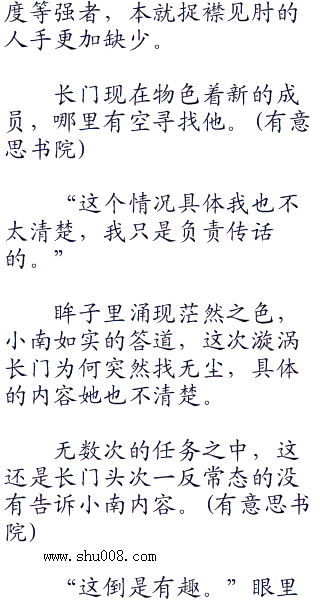 度等强者，本就捉襟见肘的
人手更加缺少。
长门现在物色着新的成
员，哪里有空寻找他。(有意
思书院)
“这个情况具体我也不
太清楚，我只是负责传话
的。”
眸子里涌现茫然之色，
小南如实的答道，这次漩涡
长门为何突然找无尘，具体
的内容她也不清楚。
无数次的任务之中，这
还是长门头次一反常态的没
有告诉小南内容。(有意思书
院)
www.shu008.com
“这倒是有趣。”眼里